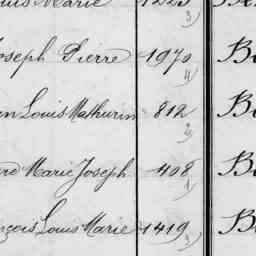 ouis Marie 1223
3)
Joseph Pierre 1970 B
4)
en Louis Mathurin 812 B
2)
re Marie Joseph 408 B
1)
nçois Louis Marie 1419 B
3)